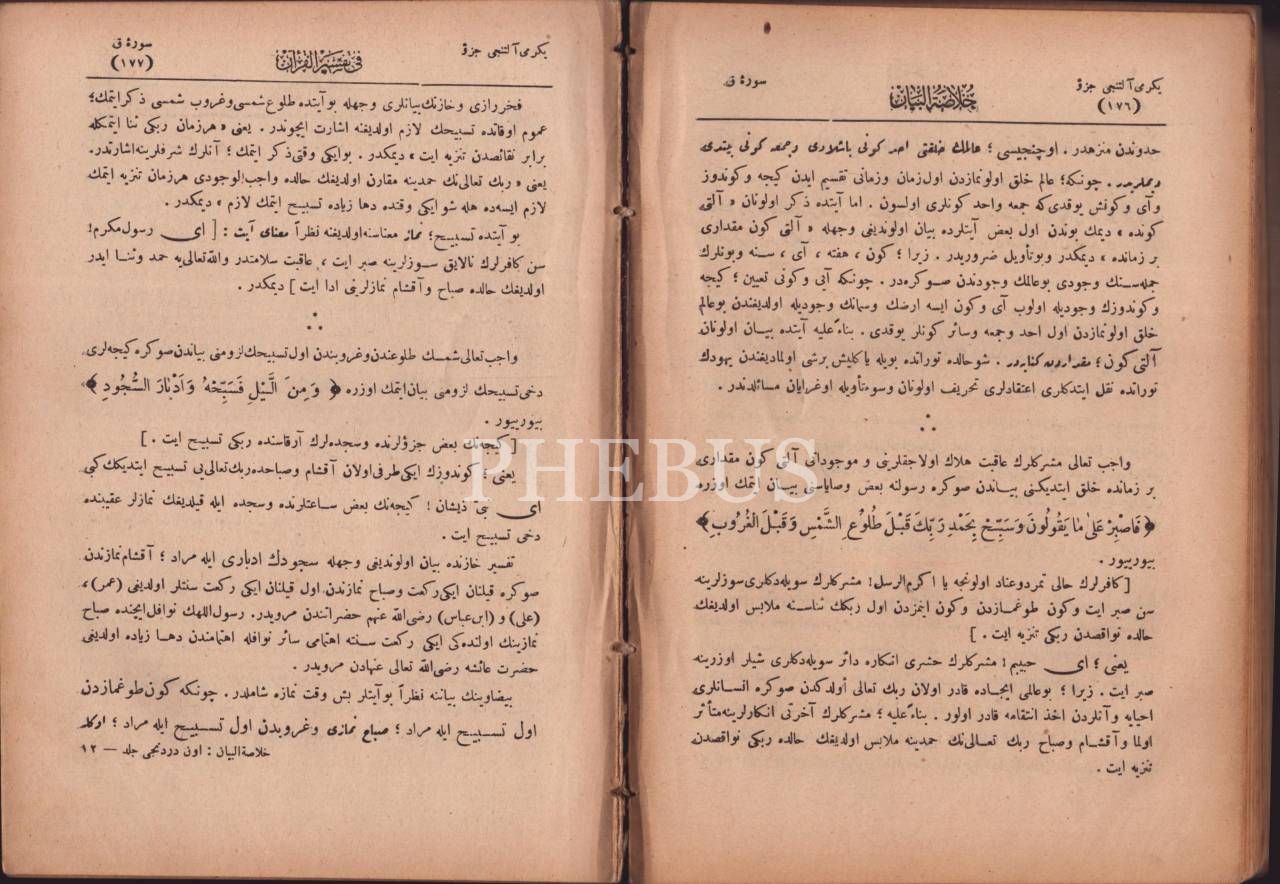 یکرمی آلتنجی جزؤ
سورۀ ق
(١٧٦)
خلاصة البیان
حدوندن منزهدر. اوچنجیسی ؛ عالمك خلقتی احد کونی باشلادی و جمعه کونی بیتدی
دیمه‌لریدر. چونکه؛ عالم خلق اولونمازدن اول زمان وزمانی تقسیم ایدن کیجه و کوندوز
و آی و کونش یوقدی که جمعه واحد کونلری اولسون . اما آیتده ذکر اولونان « آلتی
کونده » دیمك بوندن اول بعض آیتلرده بیان اولوندیغی وجهله « آلتی کون مقداری
بر زمانده » دیمکدر وبوتأویل ضروریدر . زیرا ؛ کون ، هفته ، آی ، سنه وبونلرك
جمله‌سنك وجودی بوعالمك وجودندن صوکره‌در . چونکه آیی و کونی تعیین ؛ کیجه
و کوندوزك وجودیله اولوب آی و کون ایسه ارضك وسمانك وجودیله اولدیغندن بوعالم
خلق اولونمازدن اول احد وجمعه وسائر کونلر یوقدی . بناءً علیه آیتده بیان اولونان
آلتی کون ؛ مقداردن کنایه‌در . شو حالده توراتده بویله یا کلیش برشی اولمادیغندن یهودك
توراتده نقل ایتدکلری اعتقادلری تحریف اولونان وسوء تأویله اوغرایان مسائلدندر .
واجب تعالی مشرکلرك عاقبت هلاك اولاجقلرینی و موجوداتی آلتی کون مقداری
بر زمانده خلق ایتدیکنی بیاندن صوکره رسولنه بعض وصایاسنی بیان ایتمك اوزره
﴿ فَاصْبِرْ عَلٰى مَا يَقُولُونَ وَسَبِّحْ بِحَمْدِ رَبِّكَ قَبْلَ طُلُوعِ الشَّمْسِ وَ قَبْلَ الْغُرُوبِ ﴾
بیوریور .
[ کافرلرك حالی تمرد وعناد اولونجه یا اکرم الرسل! مشرکلرك سویله‌دکلری سوزلرینه
سن صبر ایت و کون طوغمازدن و کون اینمزدن اول ربکك ثناسنه ملابس اولدیغك
حالده نواقصدن ربکی تنزیه ایت . ]
یعنی ؛ ای حبیبم! مشرکلرك حشری انکاره دائر سویله‌دکلری شیلر اوزرینه
صبر ایت . زیرا ؛ بوعالمی ایجاده قادر اولان ربك تعالی أولدکدن صوکره انسانلری
احیایه و آنلردن اخذ انتقامه قادر اولور . بناءً علیه ؛ مشرکلرك آخرتی انکارلرینه متأثر
اولما و آقشام وصباح ربك تعالی‌نك حمدینه ملابس اولدیغك حالده ربکی نواقصدن
تنزیه ایت .
یکرمی آلتنجی جزؤ
سورۀ ق
(١٧٧)
فی تفسیر القرآن
فخر رازی و خازنك بیانلری وجهله بوآیتده طلوع شمسی وغروب شمسی ذکر ایتمك؛
عموم اوقاتده تسبیحك لازم اولدیغنه اشارت ایچوندر . یعنی « هر زمان ربکی ثنا ایتمکله
برابر نقائصدن تنزیه ایت » دیمکدر . بوایکی وقتی ذکر ایتمك ؛ آنلرك شرفلرینه اشارتدر.
یعنی « ربك تعالی‌نك حمدینه مقارن اولدیغك حالده واجب الوجودی هر زمان تنزیه ایتمك
لازم ایسه‌ده هله شو ایکی وقتده دها زیاده تسبیح ایتمك لازم » دیمکدر .
بو آیتده تسبیح؛ نماز معناسنه اولدیغنه نظراً معنای آیت : [ ای رسول مکرم!
سن کافرلرك نالایق سوزلرینه صبر ایت ، عاقبت سلامتدر والله تعالی‌یه حمد وثنا ایدر
اولدیغك حالده صباح و آقشام نمازلرینی ادا ایت ] دیمکدر .
واجب تعالی شمسك طلوعندن وغروبندن اول تسبیحك لزومنی بیاندن صوکره کیجه‌لری
دخی تسبیحك لزومنی بیان ایتمك اوزره ﴿ وَ مِنَ الَّيْلِ فَسَبِّحْهُ وَ اَدْبَارَ السُّجُودِ ﴾
بیوریبور .
[ کیجه‌نك بعض جزؤلرنده وسجده‌لرك آرقاسنده ربکی تسبیح ایت . ]
یعنی ؛ کوندوزك ایکی طرفی اولان آقشام وصباحده ربك تعالی‌یی تسبیح ایتدیکك کبی
ای نبیّ ذیشان ! کیجه‌نك بعض ساعتلرنده وسجده ایله قیلدیغك نمازلر عقیبنده
دخی تسبیح ایت .
تفسیر خازنده بیان اولوندیغی وجهله سجودك ادباری ایله مراد ؛ آقشام نمازندن
صوکره قیلنان ایکی رکعت وصباح نمازندن اول قیلنان ایکی رکعت سنتلر اولدیغی (عمر)،
(علی) و (ابن عباس) رضی الله عنهم حضراتندن مرویدر. رسول اللهك نوافل ایچنده صباح
نمازینك اولنده‌کی ایکی رکعت سنته اهتمامی سائر نوافله اهتمامندن دها زیاده اولدیغی
حضرت عائشه رضی الله تعالی عنهادن مرویدر .
بیضاوینك بیاننه نظراً بوآیتلر بش وقت نمازه شاملدر. چونکه کون طوغمازدن
اول تسبیح ایله مراد ؛ صباح نمازی وغروبدن اول تسبیح ایله مراد ؛ اوکله
خلاصة البیان : اون دردنجی جلد — ١٢
PHEBUS